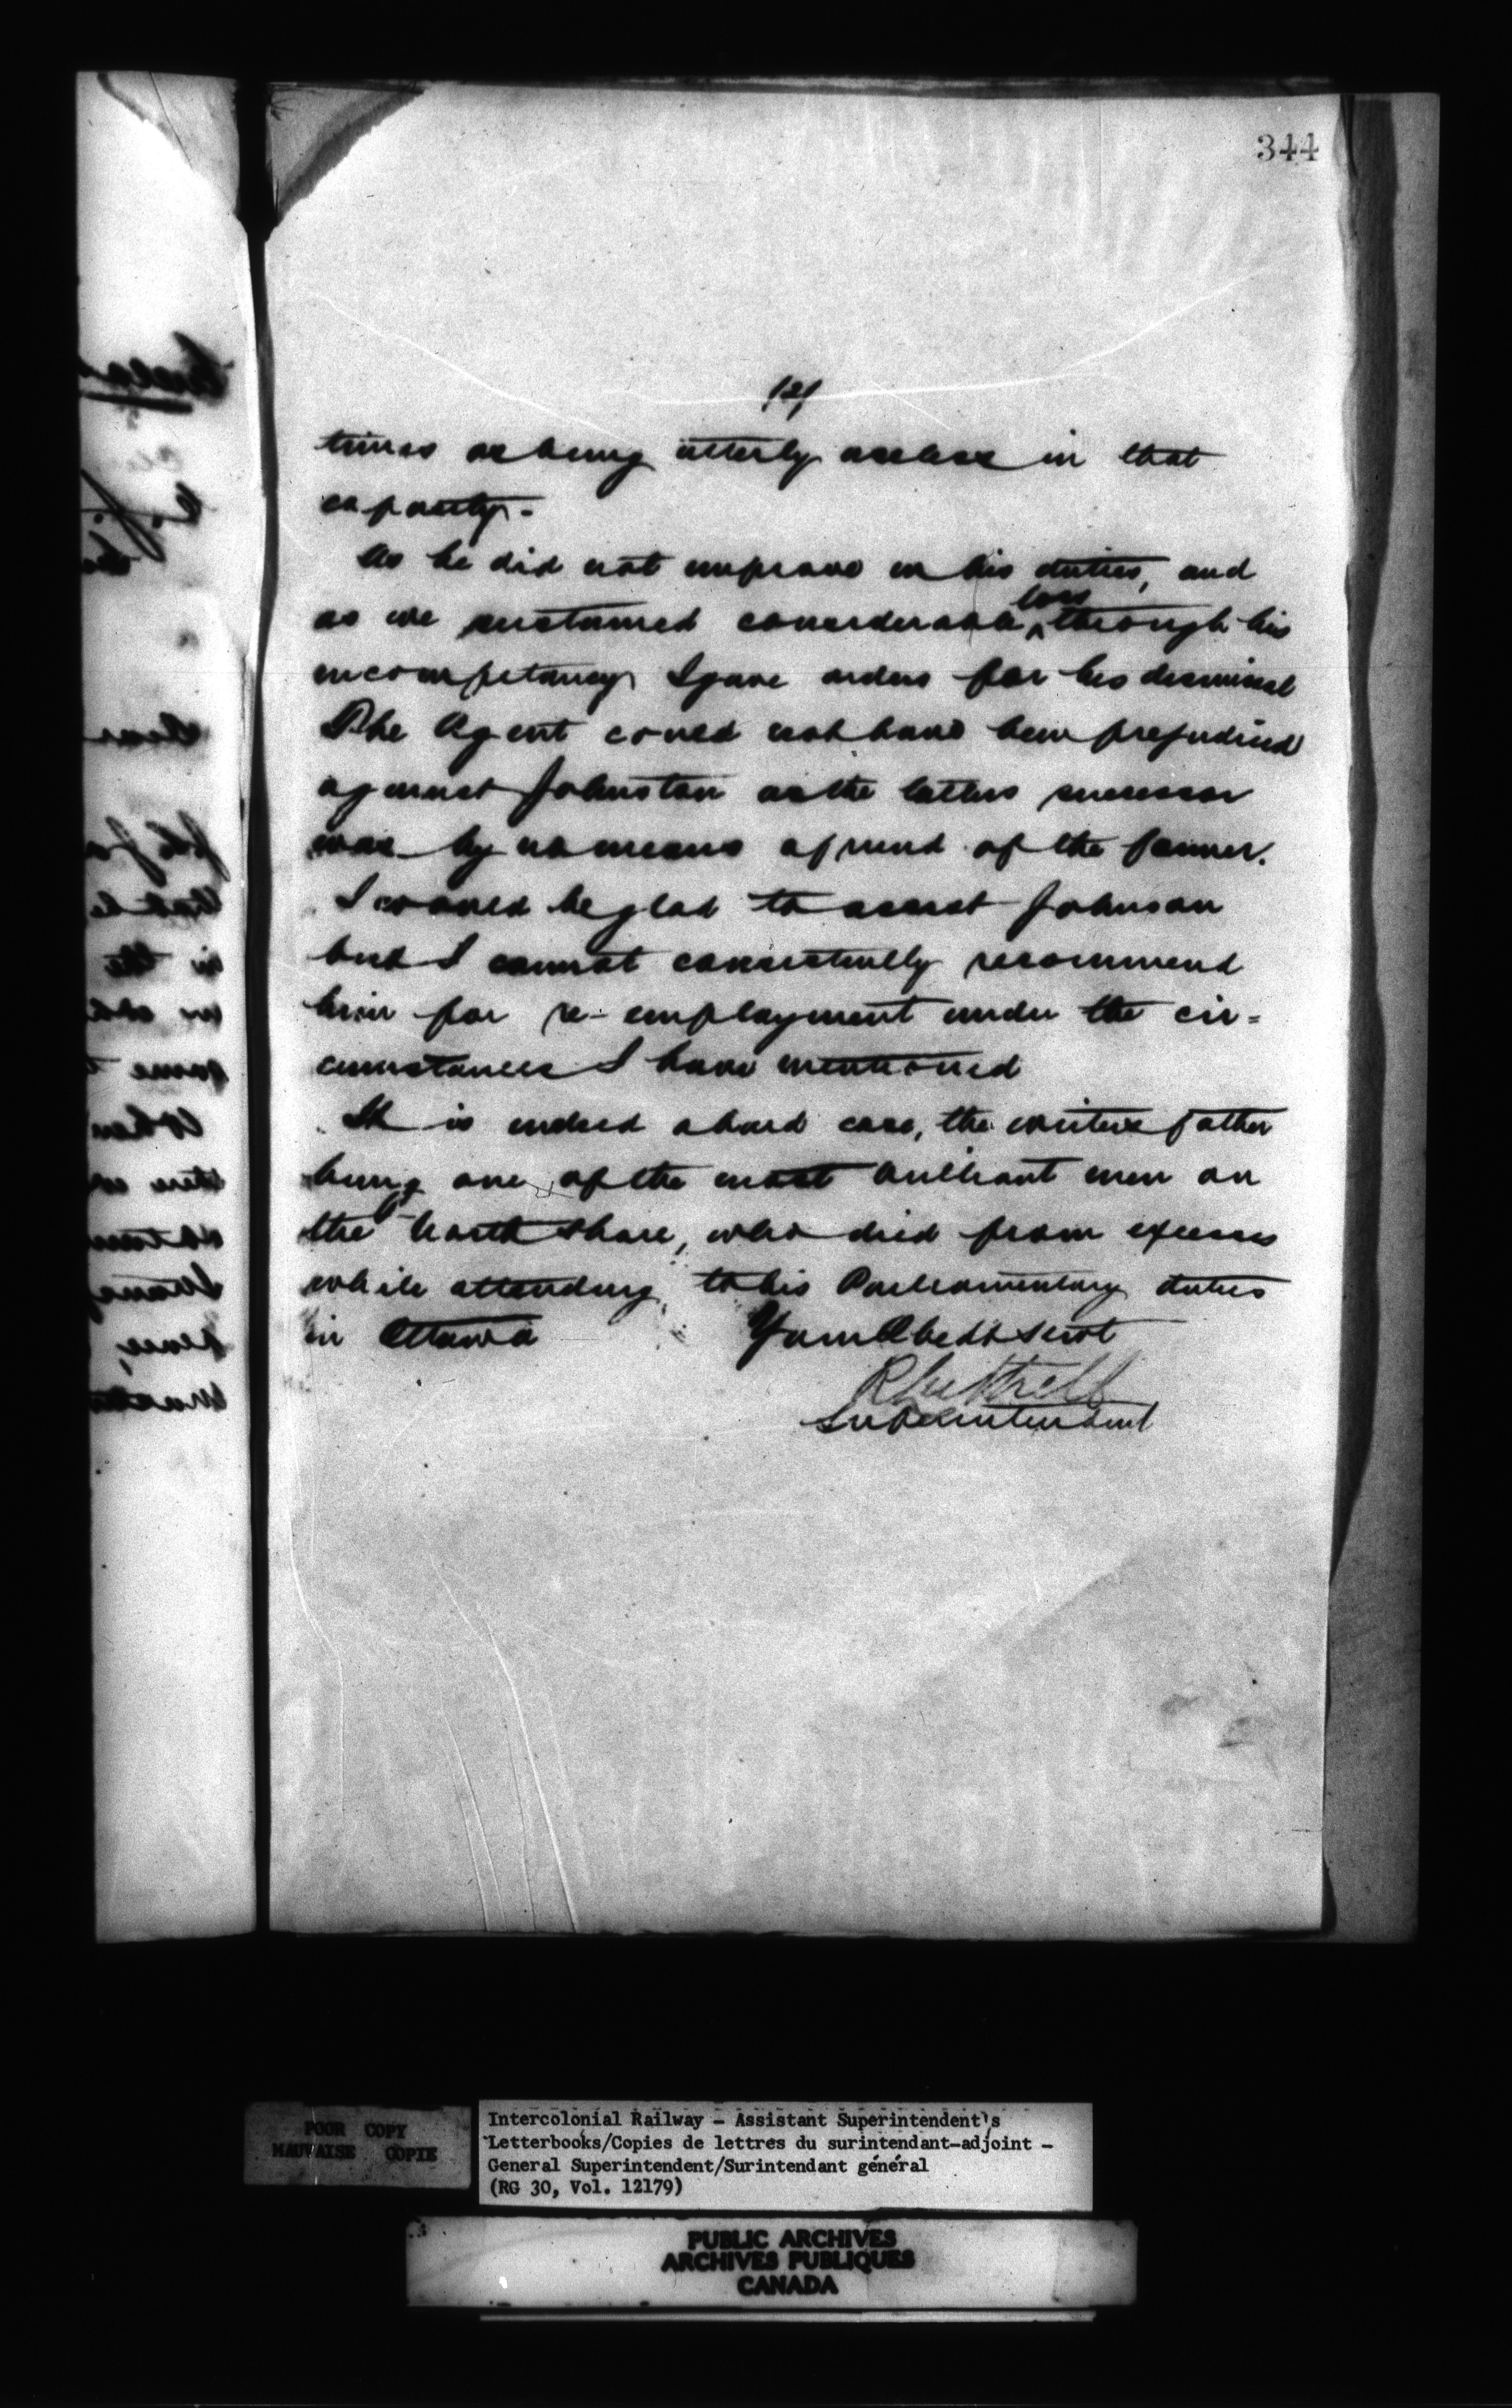 344
(2)
times as being utterly useless in that
capacity.
As he did not improve in his duties, and
as we sustained considerable loss through his
incompetancy I gave orders for his dismissal
The Agent could not have been prejudiced
against Johnston as the latters successor
was by no means a friend of the former.
I would be glad to assist Johnson
but I cannot consistently recommend
him for re-employment under the cir=
cumstances I have mentioned
It is indeed a hard case, the writers father
being one of the most brilliant men on
the North Shore, who died from excesses
while attending to his Parliamentary duties
in Ottawa
Your Obedt Servt
R Luttrell
Superintendent
POOR COPY
MAUVAISE COPIE
Intercolonial Railway - Assistant Superintendent's
Letterbooks/Copies de lettres du surintendant-adjoint -
General Superintendent/Surintendant général
(RG 30, Vol. 12179)
PUBLIC ARCHIVES
ARCHIVES PUBLIQUES
CANADA